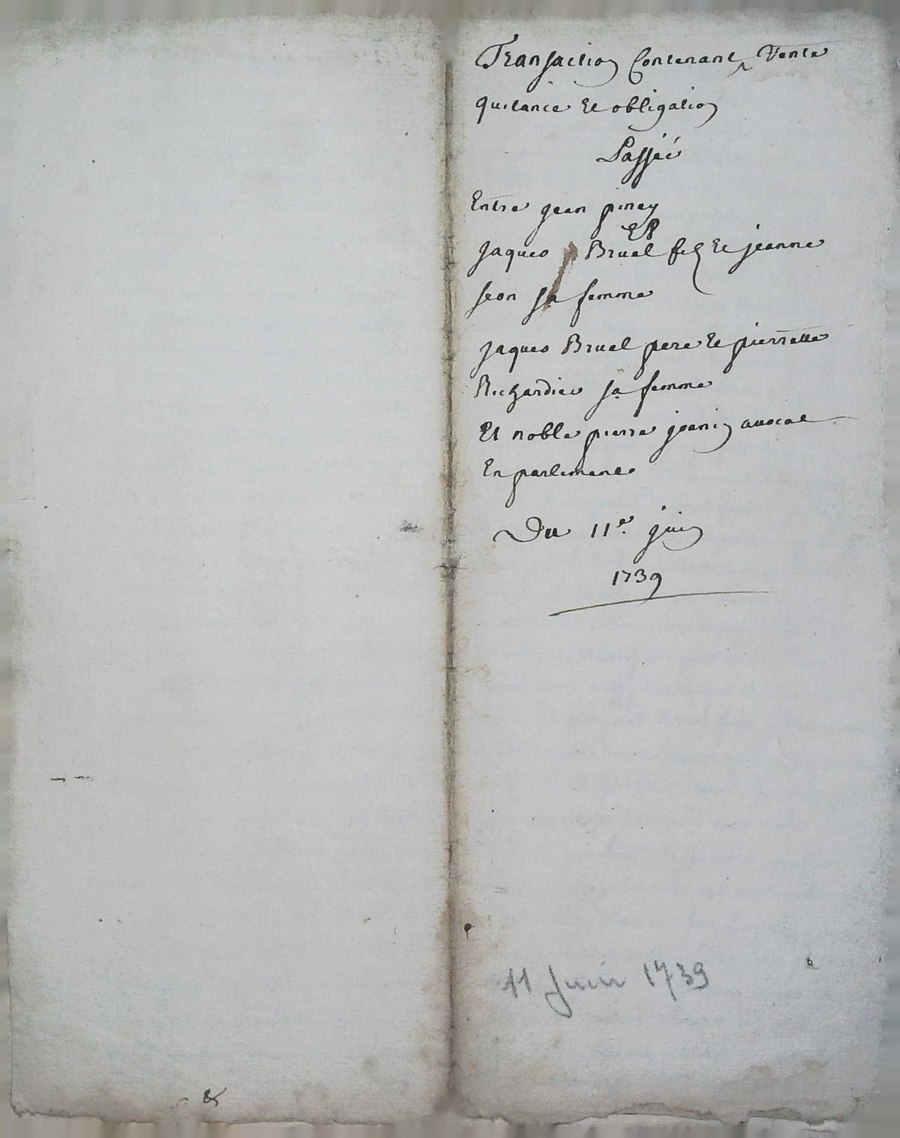 Transaction Contenant Vente
quitance Et obligation
Passée
Entre jean piney
Et
jaques Bruel fils Et jeanne
seon sa femme
jaques Bruel pere Et pierrette
Richardier sa femme
Et noble pierre jeanin avocat
En parlement
Du 11e. juin
1739
11 Juin 1739
&